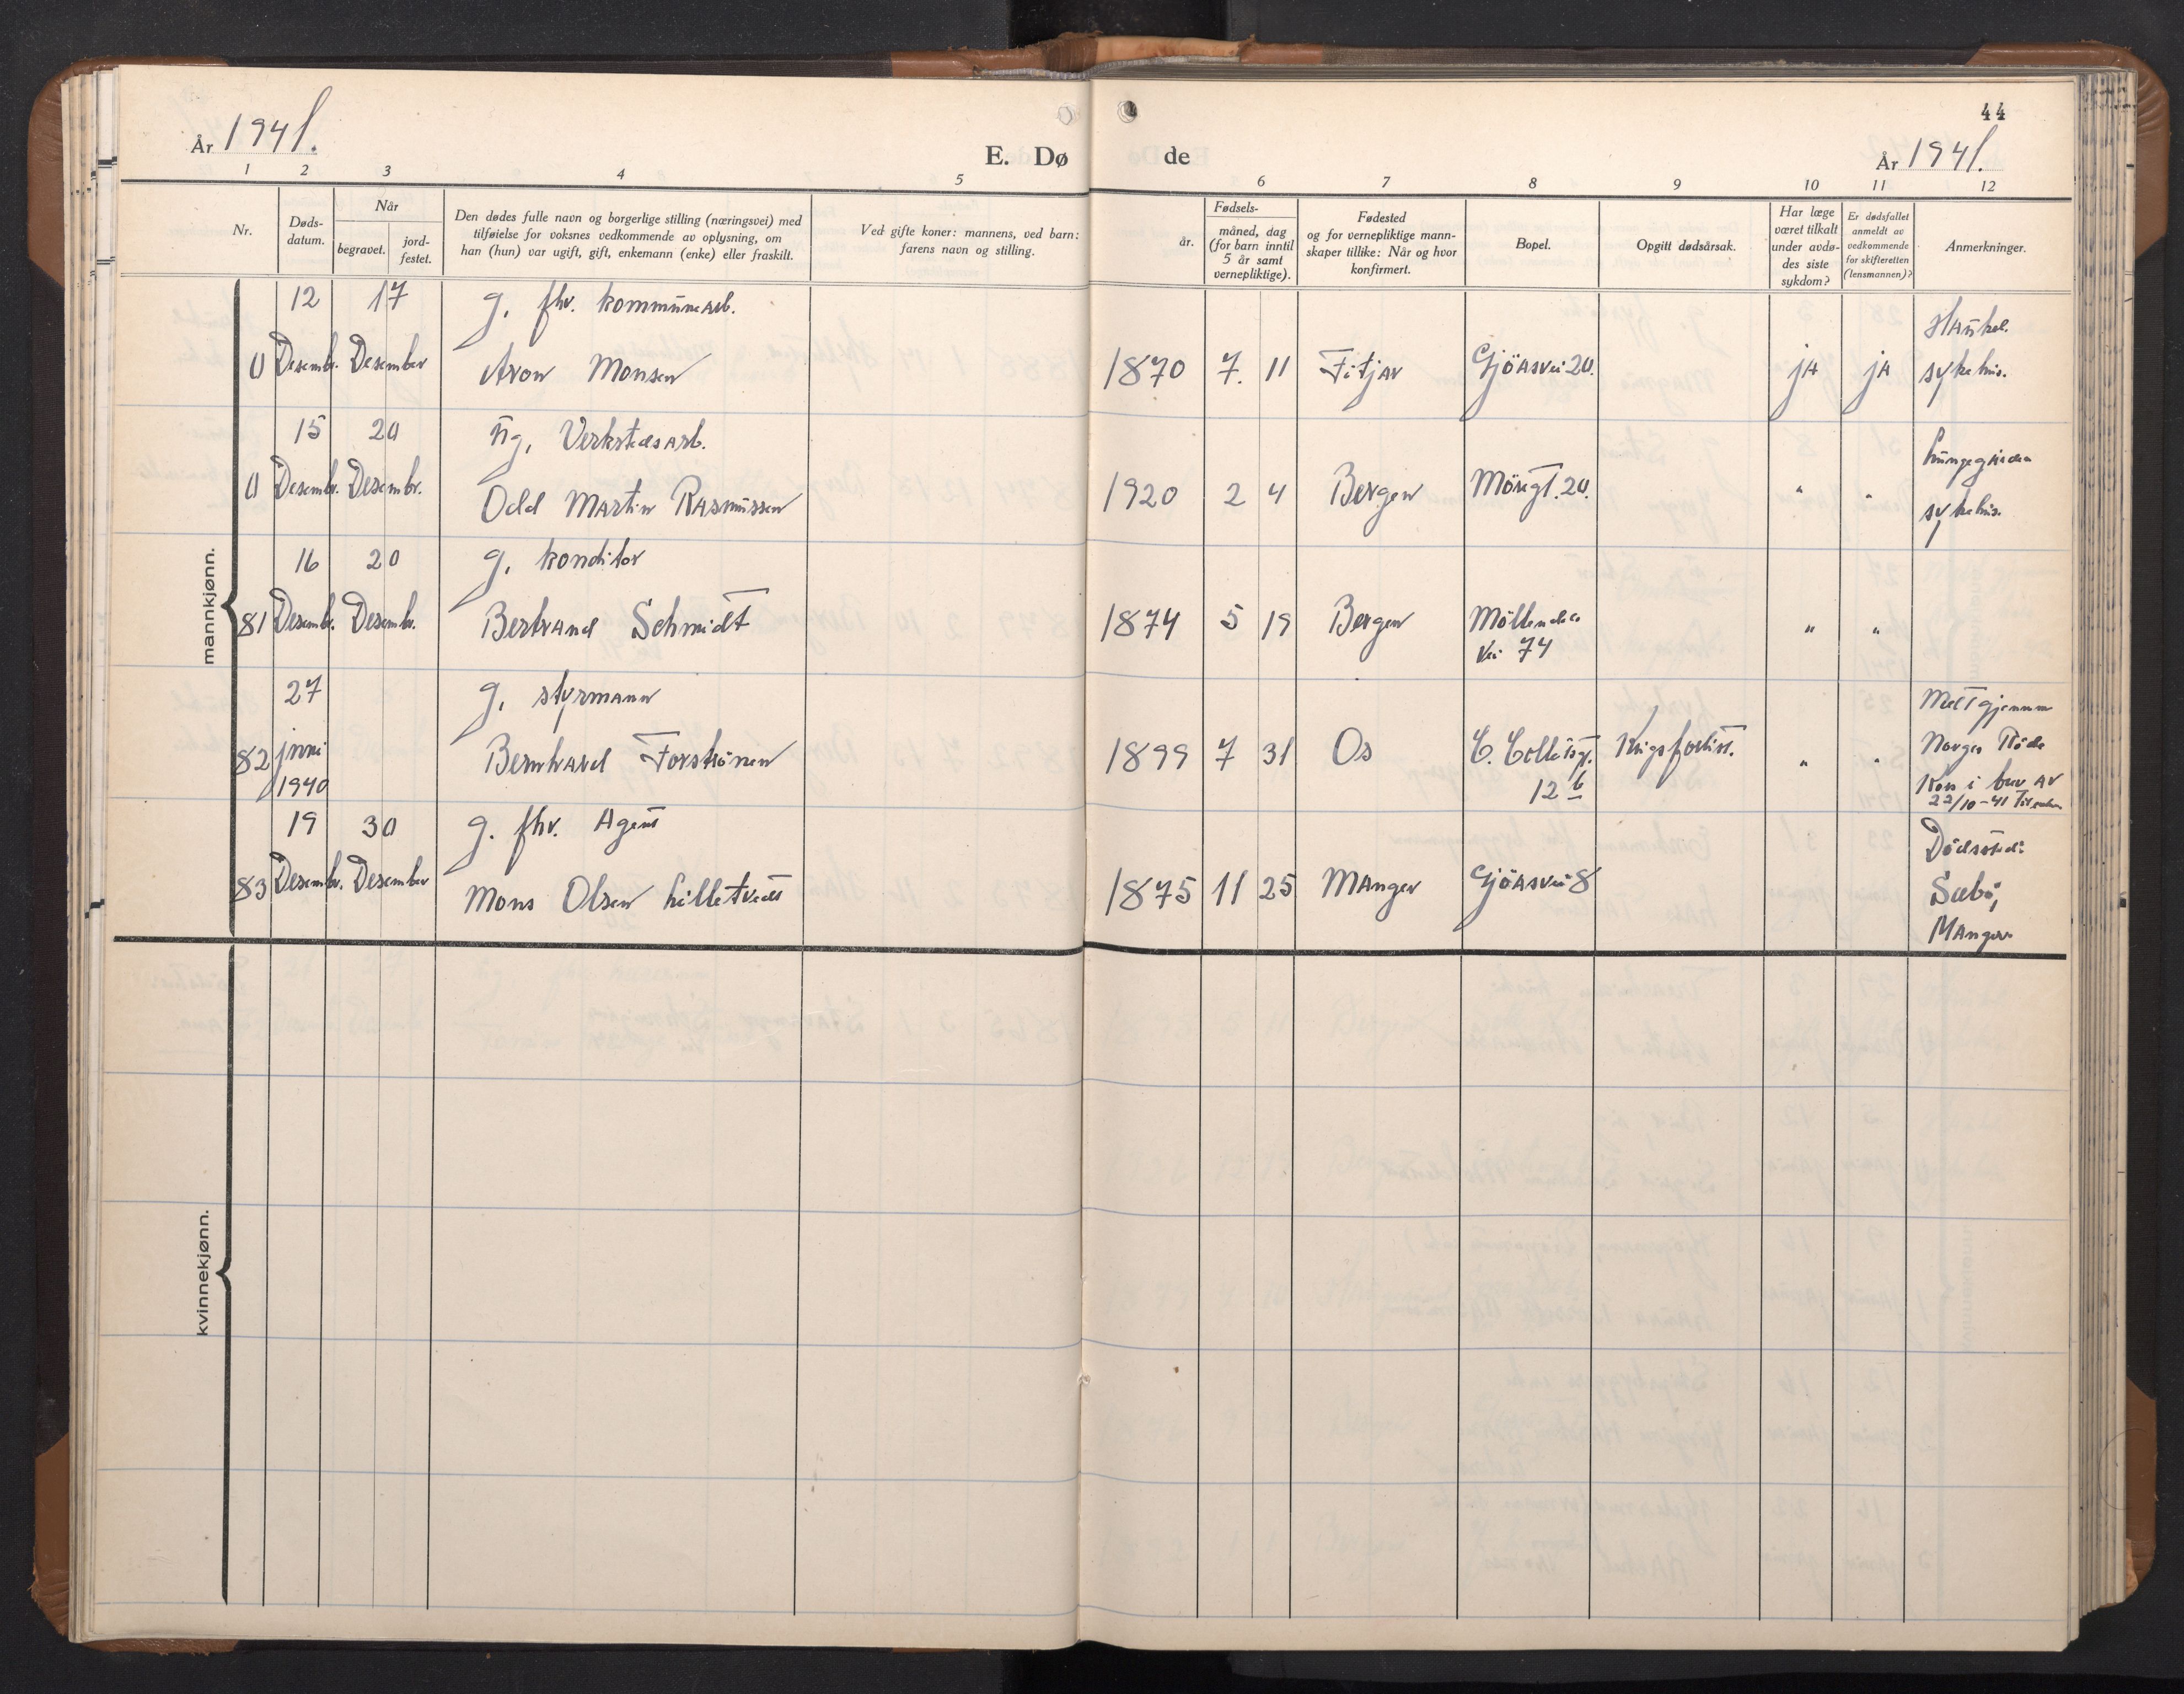 44
År 1941.
E. Dø
de
År 1941.
1 2 3 4 5 6 7 8 9 10 11 12
Nr.
Døds-
datum.
Når
begravet.
jord-
festet.
Den dødes fulle navn og borgerlige stilling (næringsvei) med
tilføielse for voksnes vedkommende av oplysning, om
han (hun) var ugift, gift, enkemann (enke) eller fraskilt.
Ved gifte koner: mannens, ved barn:
farens navn og stilling.
Fødsels-
år.
måned, dag
(for barn inntil
5 år samt
vernepliktige).
Fødested
og for vernepliktige mann-
skaper tillike: Når og hvor
konfirmert.
Bopel.
Opgitt dødsårsak.
Har læge
været tilkalt
under avdø-
des siste
sykdom?
Er dødsfallet
anmeldt av
vedkommende
for skifteretten
(lensmannen)?
Anmerkninger.
mannkjønn.
12 17 g. fhv. kommunearb. Haukel.
0 Desemb. Desember Aron Monsen 1870 7. 11 Fitjar Gjöasvei 20. ja ja sykehus.
15 20 ug. Verkstedsarb. Lungegården
0 Desemb. Desembr. Odd Martin Rasmussen 1920 2 4 Bergen Möregt. 20. " " sykehus.
16 20 g. konditor
81 Desemb. Desembr. Bertrand Schmidt 1874 5 19 Bergen Möllendals " "
vei 74
27 g. styrmann Meltgjennem
82 juni Bernhard Forströnen 1899 7 31 Os C. Collettsgt. Krigsforlist. " " Norges Röde
1940 12 b Kors i brev av
22/10-41
19 30 g. fhv. Agent Dödssted:
83 Desembr. Desember Mons Olsen Lilletvedt 1875 11 25 Manger Gjöasvei 8 Sæbö,
Manger
kvinnekjønn.